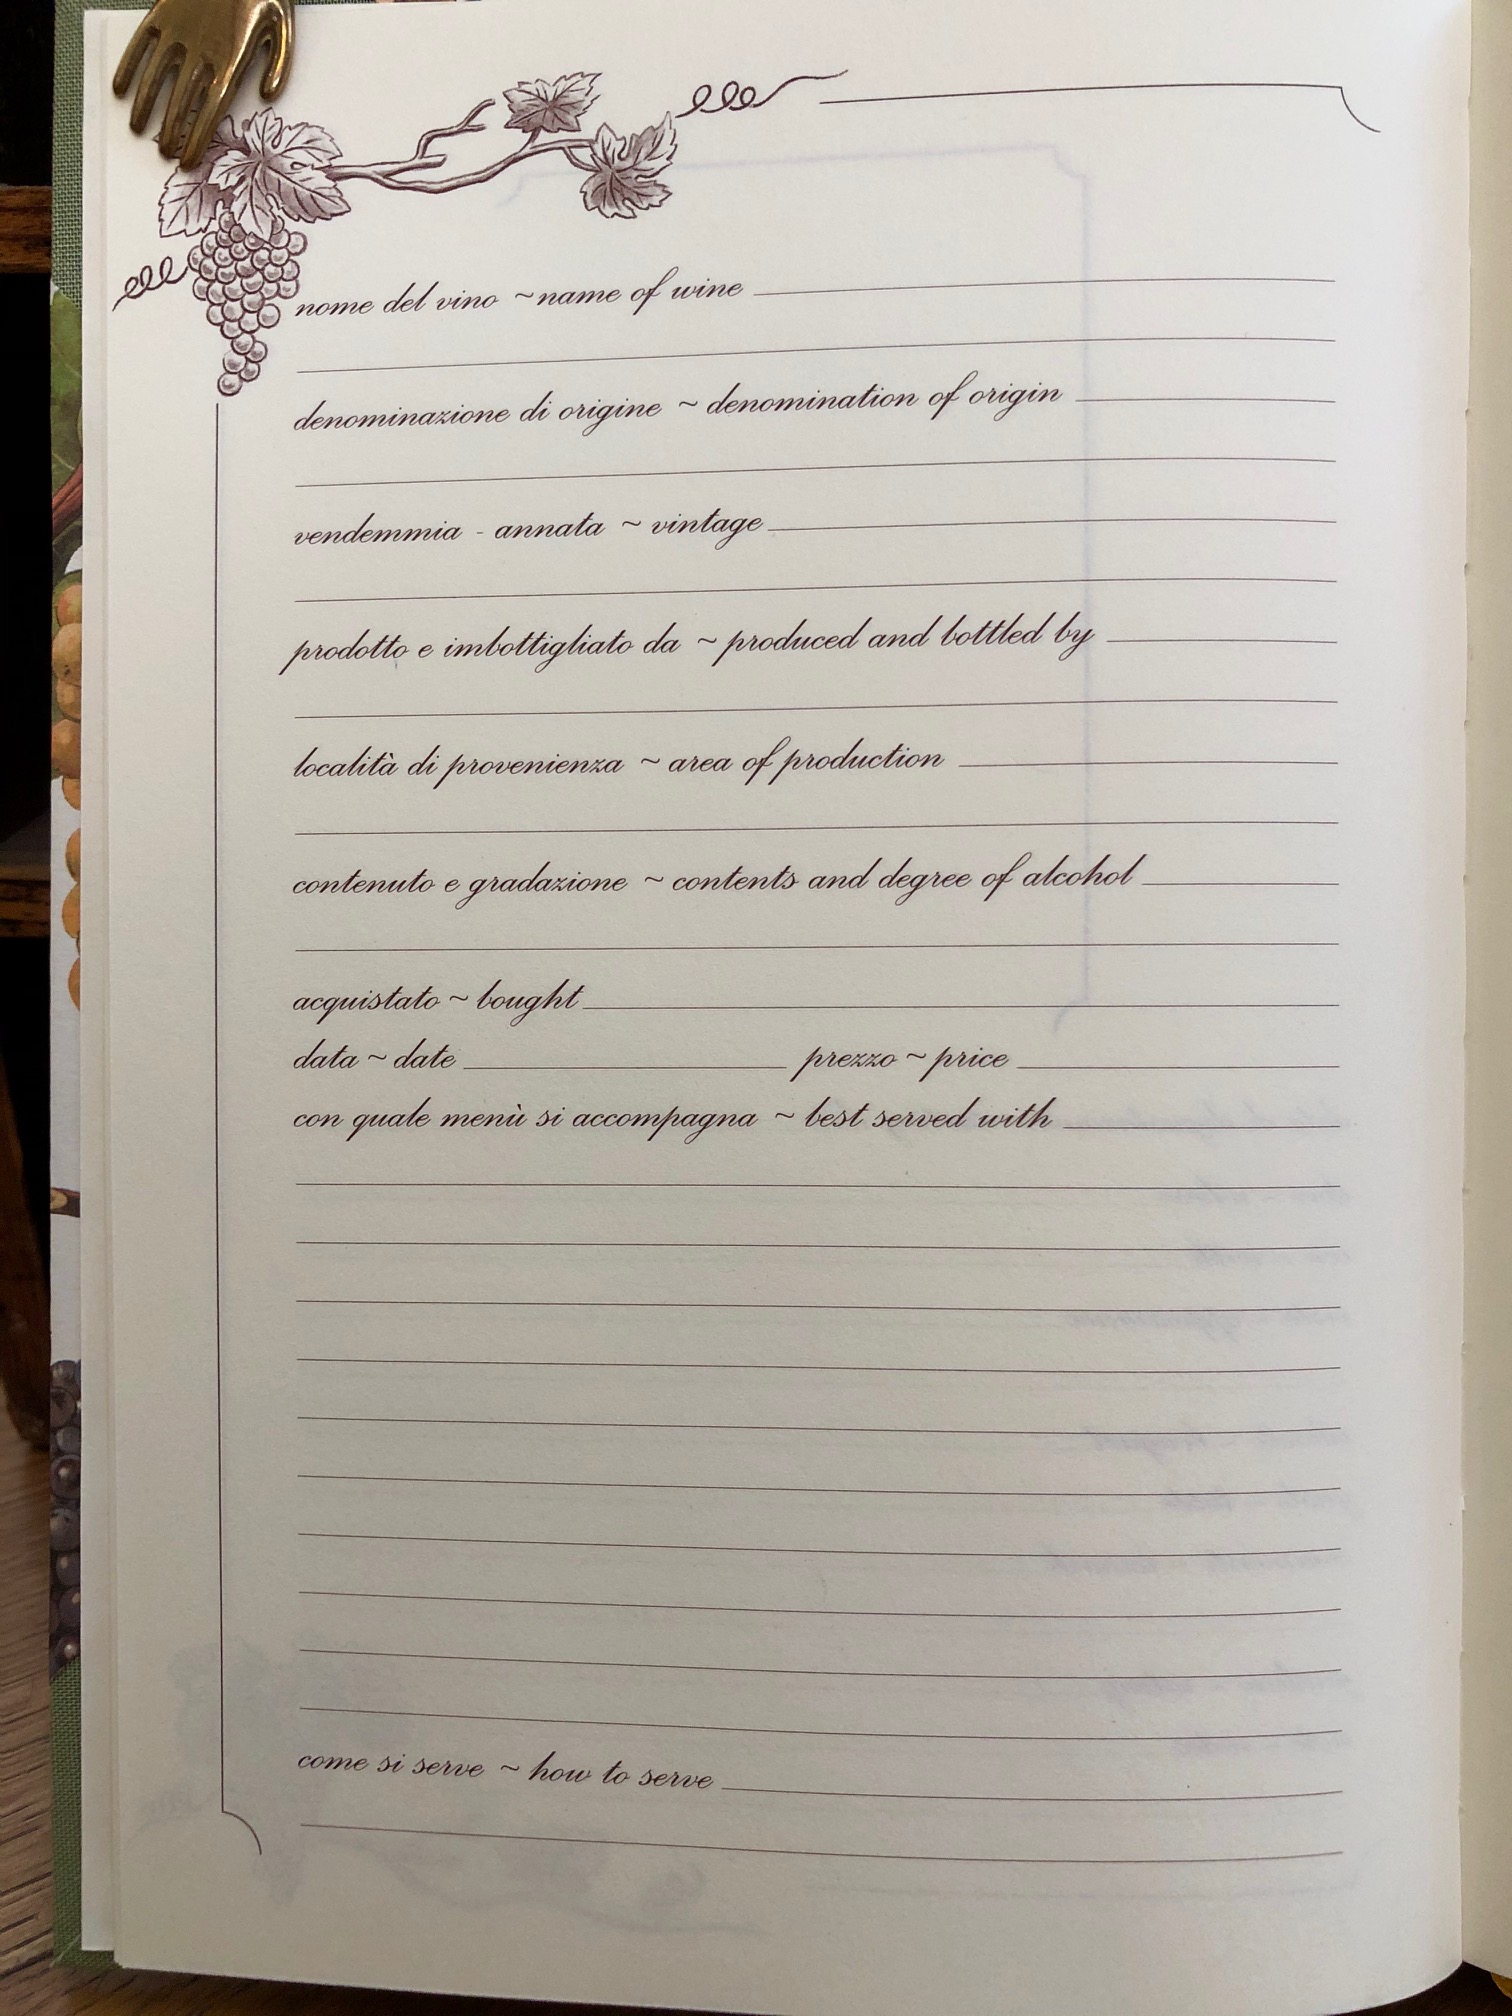 nome del vino ~ name of wine
denominazione di origine ~ denomination of origin
vendemmia - annata ~ vintage
prodotto e imbottigliato da ~ produced and bottled by
località di provenienza ~ area of production
contenuto e gradazione ~ contents and degree of alcohol
acquistato ~ bought
data ~ date prezzo ~ price
con quale menù si accompagna ~ best served with
come si serve ~ how to serve